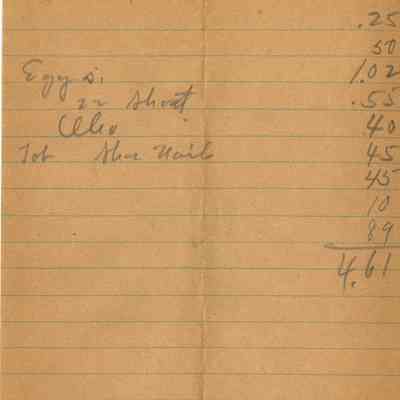 .25
50
Eggs. 1.02
22 Short .55
40
Tob Shoe Nails 45
45
10
89
4.61